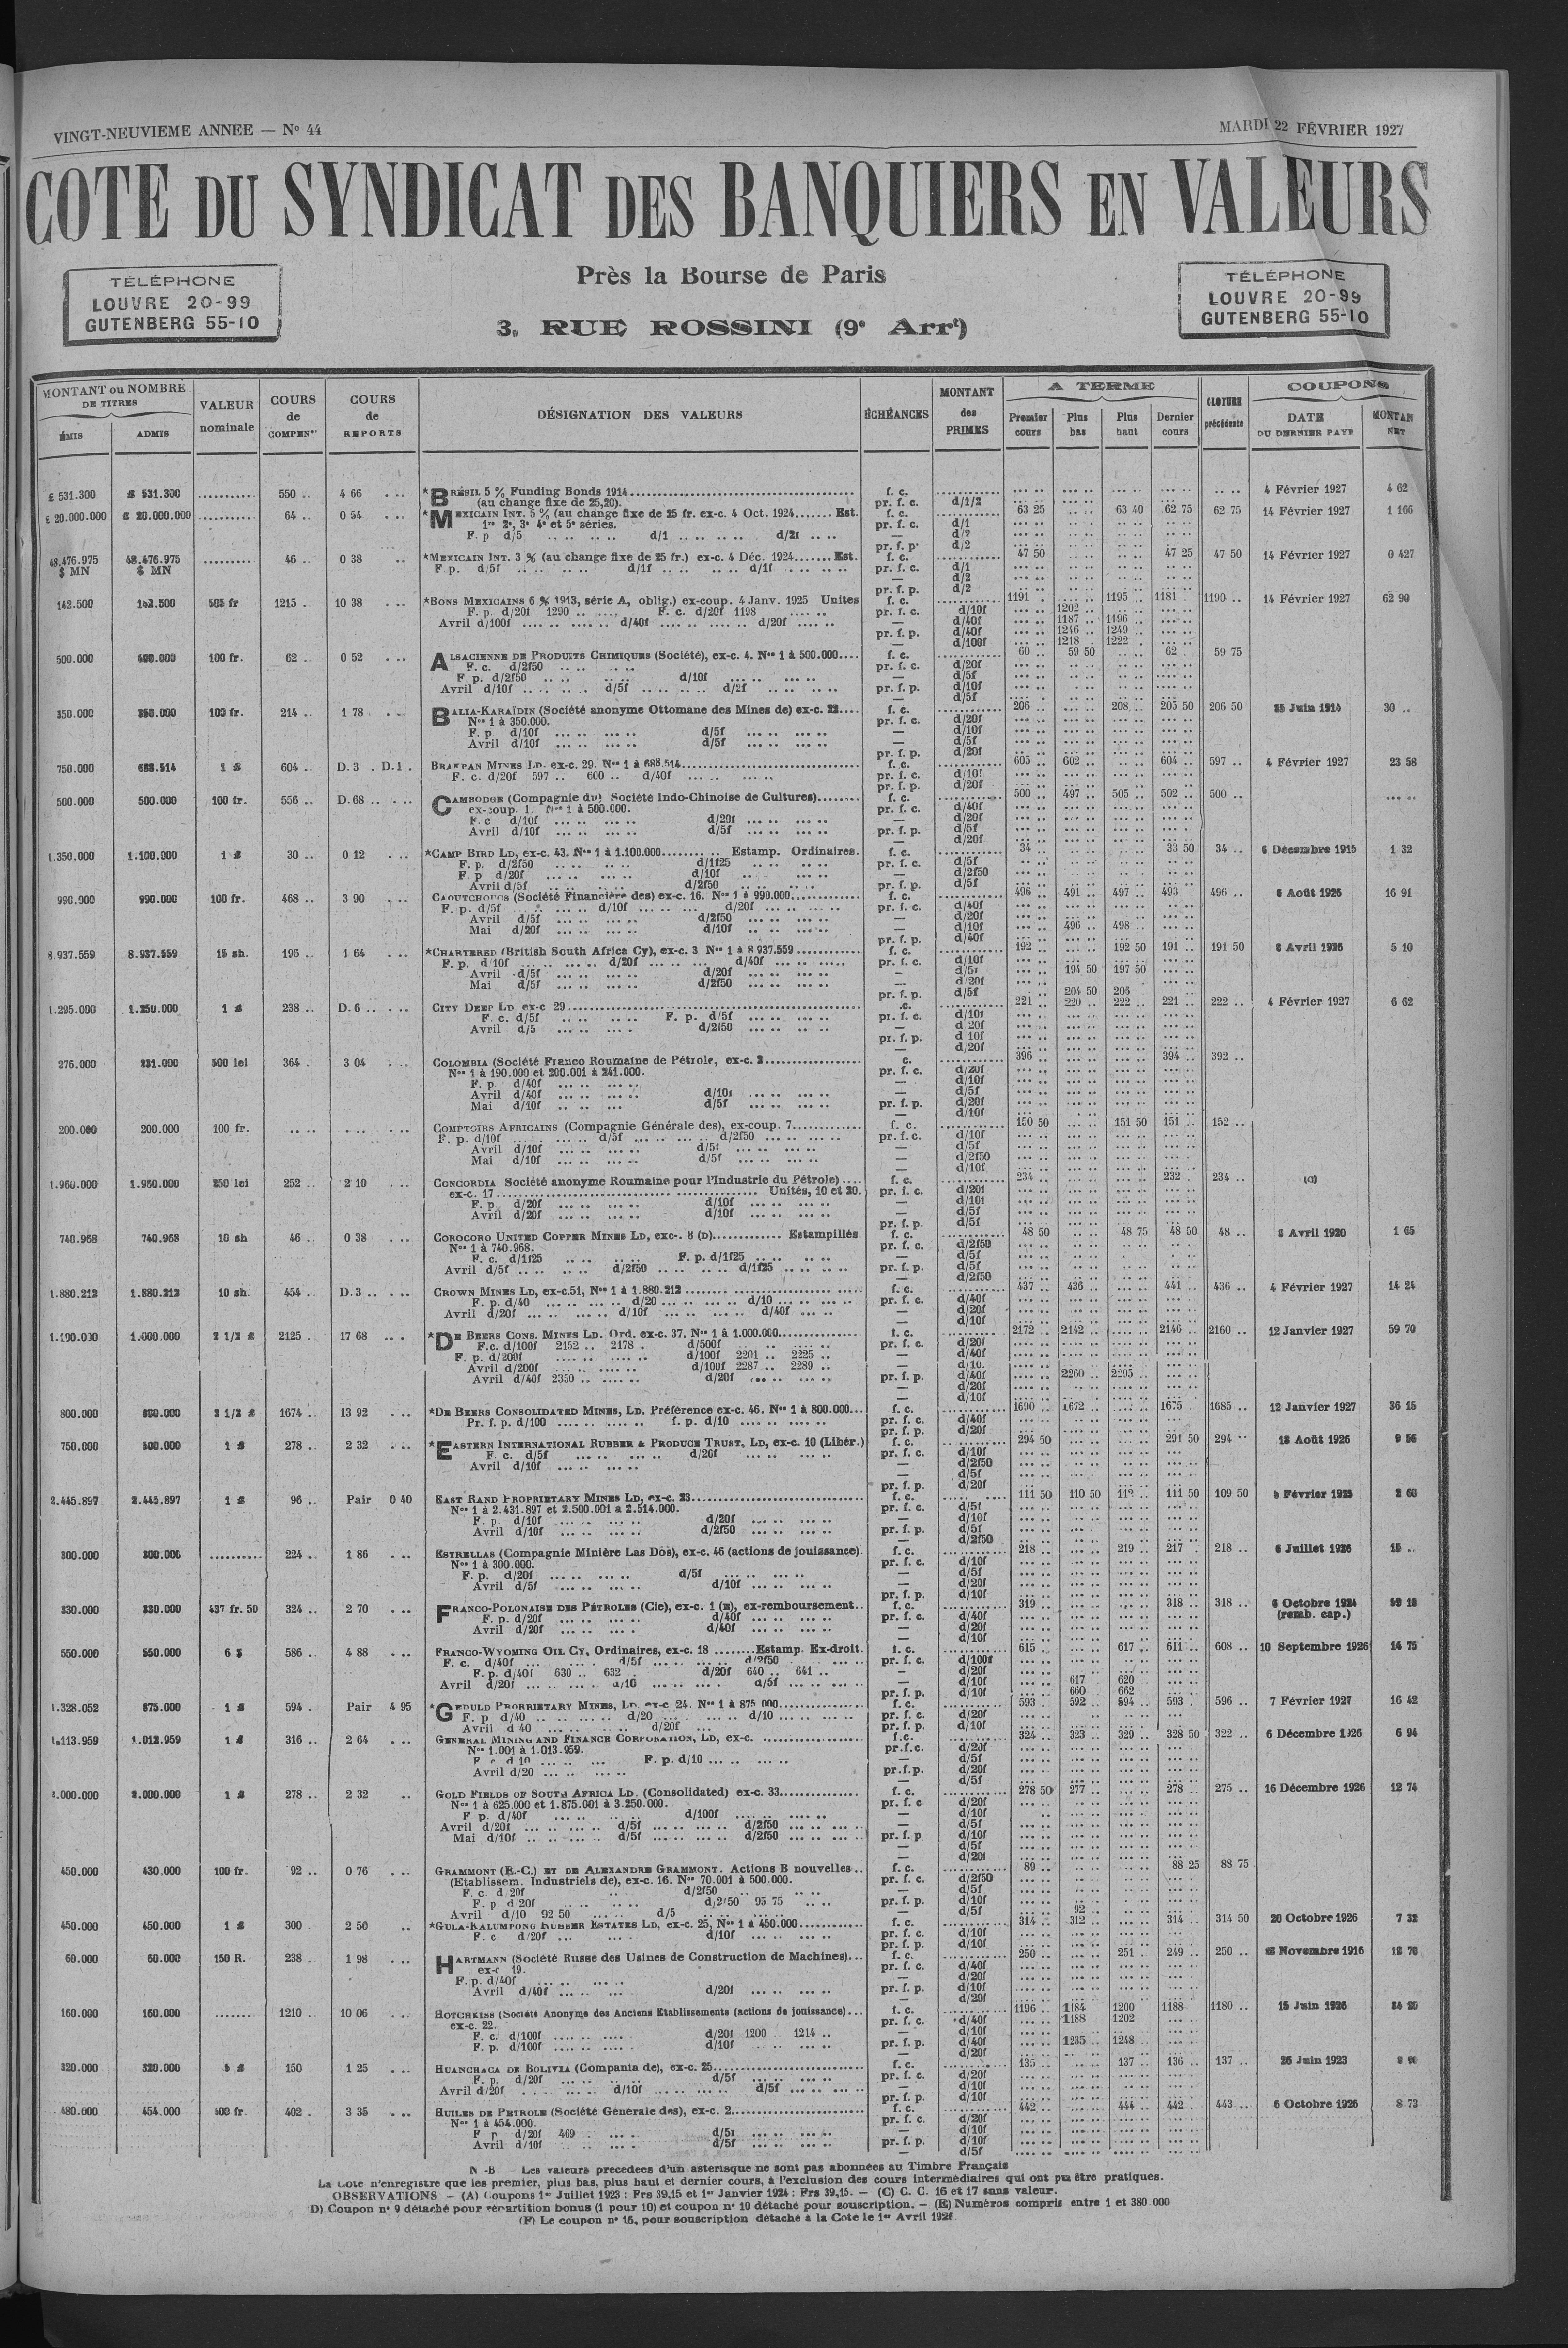 VINGT-NEUVIEME ANNEE — Nº 44
MARDI 22 FÉVRIER 1927
COTE DU SYNDICAT DES BANQUIERS EN VALEURS
Près la Bourse de Paris
3, RUE ROSSINI (9e Arrt)
TÉLÉPHONE
LOUVRE 20-99
GUTENBERG 55-10
TÉLÉPHONE
LOUVRE 20-99
GUTENBERG 55-10
MONTANT ou NOMBRE DE TITRES
ÉMIS ADMIS
VALEUR nominale
COURS de COMPENon
COURS de REPORTS
DÉSIGNATION DES VALEURS
ÉCHÉANCES
MONTANT des PRIMES
A TERME
Premier cours Plus bas Plus haut Dernier cours
CLOTURE précédente
COUPONS
DATE DU DERNIER PAYÉ MONTAN NET
£ 531.300 £ 531.300 .......... 550 .. 4 66 *BRÉSIL 5 % Funding Bonds 1914 f. c. 4 Février 1927 4 62
(au change fixe de 25,20). pr. f. c. d/1/2
£ 20.000.000 £ 20.000.000 .......... 64 .. 0 54 *MEXICAIN INT. 5 % (au change fixe de 25 fr. ex-c. 4 Oct. 1924 Est. f. c. 63 25 63 40 62 75 62 75 14 Février 1927 1 166
1re 2e, 3e 4e et 5e séries. pr. f. c. d/1
F. p d/5 d/1 d/2f — d/2
pr. f. p. d/2
48.476.975 $ MN 48.476.975 $ MN ......... 46 .. 0 38 *MEXICAIN INT. 3 % (au change fixe de 25 fr.) ex-c. 4 Déc. 1924 Est. f. c. 47 50 47 25 47 50 14 Février 1927 0 427
F p. d/5f d/1f d/1f pr. f. c. d/1
142.500 142.500 505 fr 1215 . 10 38 *BONS MEXICAINS 6 % 1913, série A, oblig.) ex-coup. 4 Janv. 1925 Unites f. c. 1191 1195 1181 1190 .. 14 Février 1927 62 90
F. p. d/20f 1290 F. c. d/20f 1198 pr. f. c. d/10f 1202
Avril d/100f d/40f d/20f — d/40f 1187 1196
pr. f. p. d/40f 1246 1249
— d/100f 1218 1222
500.000 400.000 100 fr. 62 . 0 52 ALSACIENNE DE PRODUITS CHIMIQUES (Société), ex-c. 4. Nos 1 à 500.000 f. c. 60 59 50 62 59 75
F. c. d/2f50 pr. f. c. d/20f
F p. d/2f50 d/10f — d/5f
Avril d/10f d/5f d/2f pr. f. p. d/10f
350.000 350.000 100 fr. 214 .. 1 78 BALIA-KARAÏDIN (Société anonyme Ottomane des Mines de) ex-c. 22 f. c. 206 208 205 50 206 50 25 Juin 1914 30 ..
Nos 1 à 350.000. pr. f. c. d/20f
F. p d/10f d/5f — d/10f
Avril d/10f d/5f — d/5f
pr. f. p. d/20f
750.000 688.514 1 £ 604 .. D. 3 . D. 1 . BRAKPAN MINES LD. ex-c. 29. Nos 1 à 688.514 f. c. 605 602 604 597 .. 4 Février 1927 23 58
F. c. d/20f 597 .. 600 .. d/40f pr. f. c. d/10f
500.000 500.000 100 fr. 556 .. D. 68 CAMBODGE (Compagnie du) Société Indo-Chinoise de Cultures) f. c. 500 497 505 502 500 ..
ex-coup. 1. Nos 1 à 500.000. pr. f. c. d/40f
F. c d/10f d/20f — d/20f
Avril d/10f d/5f pr. f. p. d/5f
1.350.000 1.100.000 1 £ 30 .. 0 12 *CAMP BIRD LD, ex-c. 43. Nos 1 à 1.100.000 Estamp. Ordinaires. f. c. 34 33 50 34 .. 6 Décembre 1915 1 32
F. p. d/2f50 d/1f25 pr. f. c. d/5f
F. p d/20f d/10f — d/2f50
Avril d/5f d/2f50 pr. f. p. d/5f
990.000 990.000 100 fr. 468 .. 3 90 CAOUTCHOUCS (Société Financière des) ex-c. 16. Nos 1 à 990.000 f. c. 496 491 497 493 496 .. 6 Août 1926 16 91
F. p. d/5f d/10f d/20f pr. f. c. d/40f
Avril d/5f d/2f50 — d/20f
Mai d/20f d/10f — d/10f 496 498
pr. f. p. d/40f
8.937.559 8.937.559 15 sh. 196 .. 1 64 *CHARTERED (British South Africa Cy), ex-c. 3 Nos 1 à 8 937.559 f. c. 192 192 50 191 191 50 8 Avril 1926 5 10
F. p. d/10f d/20f d/40f pr. f. c. d/10f
Avril d/5f d/20f — d/5f 194 50 197 50
Mai d/5f d/2f50 — d/20f
pr. f. p. d/5f 204 50 206
1.295.000 1.250.000 1 £ 238 .. D. 6 CITY DEEP LD ex-c 29 221 220 222 221 222 .. 4 Février 1927 6 62
F. c. d/5f F. p. d/5f pr. f. c. d/10f
Avril d/5 d/2f50 — d 20f
276.000 231.000 500 lei 364 . 3 04 COLOMBIA (Société Franco Roumaine de Pétrole, ex-c. 2 396 394 392 ..
Nos 1 à 190.000 et 200.001 à 241.000. pr. f. c. d/20f
F. p. d/40f — d/10f
Avril d/40f d/10f — d/5f
Mai d/10f d/5f pr. f. p. d/20f
200.000 200.000 100 fr. COMPTOIRS AFRICAINS (Compagnie Générale des), ex-coup. 7 f. c. 150 50 151 50 151 152 ..
F. p. d/10f d/5f d/2f50 pr. f. c. d/10f
Avril d/10f d/5f — d/5f
Mai d/10f d/5f — d/2f50
1.960.000 1.960.000 250 lei 252 .. 2 10 CONCORDIA Société anonyme Roumaine pour l'Industrie du Pétrole) f. c. 234 232 234 .. (C)
ex-c. 17 Unités, 10 et 20. pr. f. c. d/20f
F. p. d/20f d/10f — d/10f
Avril d/20f d/10f — d/5f
740.968 740.968 10 sh 46 . 0 38 COROCORO UNITED COPPER MINES LD, exc-. 8 (D) Estampillés f. c. 48 50 48 75 48 50 48 .. 8 Avril 1920 1 65
Nos 1 à 740.968. pr. f. c. d/2f50
F. c. d/1f25 F. p. d/1f25 — d/5f
Avril d/5f d/2f50 d/1f25 pr. f. p. d/5f
1.880.212 1.880.212 10 sh. 454 .. D. 3 CROWN MINES LD, ex-c.51, Nos 1 à 1.880.212 f. c. 437 436 441 436 .. 4 Février 1927 14 24
F. p. d/40 d/20 d/10 pr. f. c. d/40f
Avril d/20f d/10f d/40f — d/20f
1.190.000 1.000.000 2 1/2 £ 2125 . 17 68 *DE BEERS CONS. MINES LD. Ord. ex-c. 37. Nos 1 à 1.000.000 f. c. 2172 2142 2146 2160 .. 12 Janvier 1927 59 70
F.c. d/100f 2152 .. 2178 . d/500f pr. f. c. d/20f
F. p. d/200f d/100f 2201 .. 2225 .. — d/40f
Avril d/200f d/100f 2287 .. 2289 .. — d/10.
Avril d/40f 2350 d/20f pr. f. p. d/40f 2260 2295
800.000 800.000 2 1/2 £ 1674 .. 13 92 *DE BEERS CONSOLIDATED MINES, LD. Préférence ex-c. 46. Nos 1 à 800.000 f. c. 1690 1672 1675 1685 .. 12 Janvier 1927 36 15
Pr. f. p. d/100 f. p. d/10 pr. f. c. d/40f
750.000 500.000 1 £ 278 .. 2 32 *EASTERN INTERNATIONAL RUBBER & PRODUCE TRUST, LD, ex-c. 10 (Libér.) f. c. 294 50 291 50 294 18 Août 1926 9 56
F. c. d/5f d/20f pr. f. c. d/10f
Avril d/10f — d/2f50
2.445.897 2.445.897 1 £ 96 .. Pair 0 40 EAST RAND PROPRIETARY MINES LD, ex-c. 23 f. c. 111 50 110 50 112 111 50 109 50 Février 2 60
Nos 1 à 2.431.897 et 2.500.001 à 2.514.000. pr. f. c. d/5f
F. p. d/10f d/20f — d/10f
Avril d/10f d/2f50 pr. f. p. d/5f
300.000 300.000 .......... 224 .. 1 86 ESTRELLAS (Compagnie Minière Las Dos), ex-c. 46 (actions de jouissance). f. c. 218 219 217 218 .. 6 Juillet 1926 15 ..
Nos 1 à 300.000. pr. f. c. d/10f
F. p. d/20f d/5f — d/5f
Avril d/5f d/10f — d/20f
330.000 330.000 437 fr. 50 324 .. 2 70 FRANCO-POLONAISE DES PÉTROLES (Cie), ex-c. 1 (E), ex-remboursement f. c. 319 318 318 .. 6 Octobre 1924
(remb. cap.)
F. p. d/20f d/40f pr. f. c. d/40f
Avril d/20f d/40f — d/20f
550.000 550.000 6 $ 586 .. 4 88 FRANCO-WYOMING OIL CY, Ordinaires, ex-c. 18 Estamp. Ex-droit. f. c. 615 617 611 608 .. 10 Septembre 1926 14 75
F. c. d/40f d/5f d/2f50 pr. f. c. d/100f
F. p. d/40f 630 .. 632 d/20f 640 .. 641 .. — d/20f
Avril d/20f d/10 d/5f — d/10f 617 620
pr. f. p. d/10f 660 662
1.328.052 875.000 1 £ 594 . Pair 4 95 *GEDULD PROPRIETARY MINES, LD. ex-c 24. Nos 1 à 875 000 f. c. 593 592 594 593 596 .. 7 Février 1927 16 42
F. p d/40 d/20 d/10 pr. f. c. d/20f
Avril d 40 d/20f pr. f. p. d/10f
1.113.959 1.013.959 1 £ 316 .. 2 64 GENERAL MINING AND FINANCE CORPORATION, LD, ex-c. f.c. 324 323 329 328 50 322 .. 6 Décembre 1926 6 94
Nos 1.001 à 1.013.959. pr.f.c. d/20f
F. c d 10 F. p. d/10 — d/5f
Avril d/20 pr.f.p. d/20f
2.000.000 2.000.000 1 £ 278 .. 2 32 GOLD FIELDS OF SOUTH AFRICA LD. (Consolidated) ex-c. 33 f. c. 278 50 277 278 275 .. 16 Décembre 1926 12 74
Nos 1 à 625.000 et 1.875.001 à 3.250.000. pr. f. c d/20f
F p. d/40f d/100f — d/10f
Avril d/20f d/5f d/2f50 — d/5f
Mai d/10f d/5f d/2f50 pr. f. p d/10f
450.000 430.000 100 fr. 92 .. 0 76 GRAMMONT (E.-C.) ET DE ALEXANDRE GRAMMONT. Actions B nouvelles f. c. 89 88 25 88 75
(Etablissem. Industriels de), ex-c. 16. Nos 70.001 à 500.000. pr. f. c. d/2f50
F. c. d/20f d/2f50 — d/5f
F. p d 20f d/2f50 95 75 pr. f. p. d/10f
Avril d/10 92 50 d/5 — d/5f 92
450.000 450.000 1 £ 300 . 2 50 *GULA-KALUMPONG RUBBER ESTATES LD, ex-c. 25, Nos 1 à 450.000 f. c. 314 312 314 314 50 20 Octobre 1926 7 32
F. c d/20f d/10f pr. f. c. d/10f
60.000 60.000 150 R. 238 . 1 98 HARTMANN (Société Russe des Usines de Construction de Machines) f. c. 250 251 249 250 .. Novembre 1916
ex-c 19. pr. f. c. d/40f
F. p. d/40f — d/20f
Avril d/40f d/20f pr. f. p. d/10f
160.000 160.000 ........ 1210 .. 10 06 HOTCHKISS (Société Anonyme des Anciens Etablissements (actions de jouissance) f. c. 1196 1184 1200 1188 1180 .. 15 Juin 1926
ex-c. 22. pr. f. c. d/40f 1188 1202
F. c. d/100f d/20f 1200 1214 .. — d/10f
F. p. d/100f d/10f pr. f. p. d/40f 1235 1248
320.000 320.000 5 £ 150 1 25 HUANCHACA DE BOLIVIA (Compania de), ex-c. 25 f. c. 135 137 136 137 .. 26 Juin 1923
F. p. d/20f d/5f pr. f. c. d/20f
Avril d/20f d/10f d/5f — d/10f
480.000 454.000 500 fr. 402 . 3 35 HUILES DE PETROLE (Société Générale des), ex-c. 2 f. c. 442 444 442 443 .. 6 Octobre 1926 8 73
Nos 1 à 454.000. pr. f. c. d/20f
F p d/20f 469 d/5f — d/10f
Avril d/10f d/5f pr. f. p. d/10f
N.-B — Les valeurs precedees d'un asterisque ne sont pas abonnées au Timbre Français
La Cote n'enregistre que les premier, plus bas, plus haut et dernier cours, à l'exclusion des cours intermédiaires qui ont pu être pratiques.
OBSERVATIONS — (A) Coupons 1er Juillet 1923 : Frs 39,15 et 1er Janvier 1924 : Frs 39,15. — (C) C. C. 16 et 17 sans valeur.
D) Coupon nº 9 détaché pour répartition bonus (1 pour 10) et coupon nº 10 détaché pour souscription. — (E) Numéros compris entre 1 et 380 000
(F) Le coupon nº 16, pour souscription détaché à la Cote le 1er Avril 1926